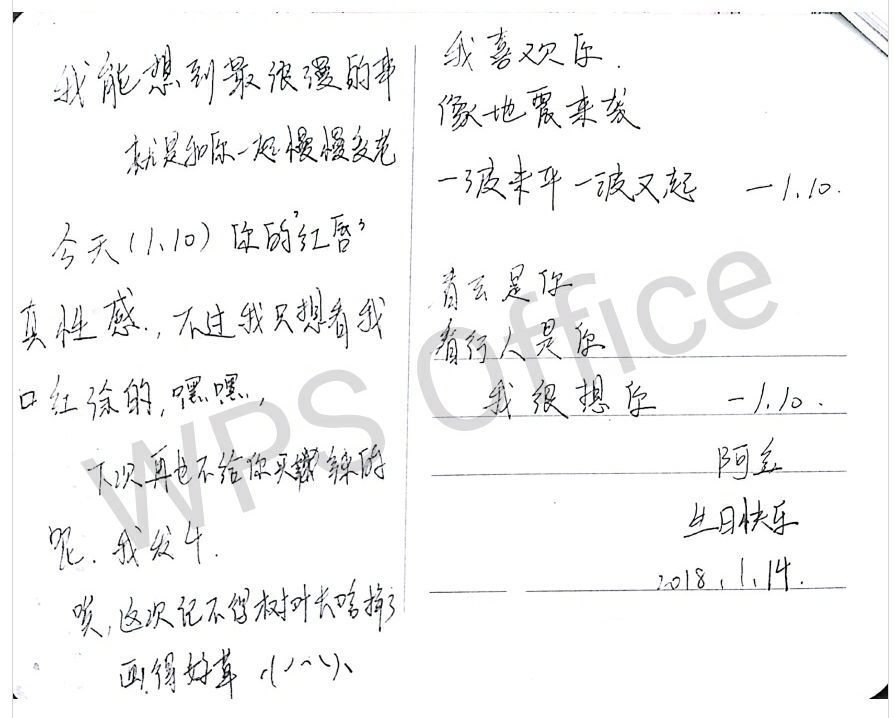 我能想到最浪漫的事
就是和你一起慢慢变老
今天(1.10)你的"红唇"
真性感.,不过我只想看我
口红涂的,嘿嘿,
下次再也不给你买辣的
呢.我发4.
唉,这次记不得树叶长啥样了
画得好草
我喜欢你.
像地震来袭
一波未平一波又起 —1.10.
看云是你
看行人是你
我很想你 —1.10.
阿
生日快乐
2018.1.14.
WPS Office